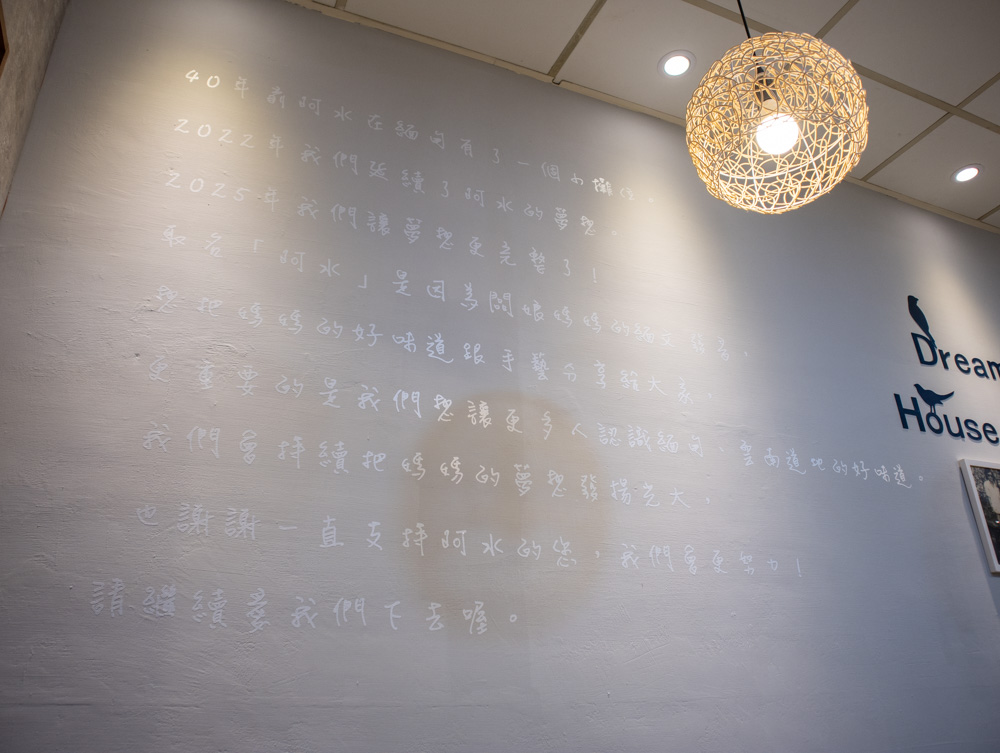 40年前阿水在緬甸有了一個小攤位。
2022年我們延續了阿水的夢想。
2025年我們讓夢想更完整了!
取名「阿水」是因為闆娘媽媽的緬文發音,
想把媽媽的好味道跟手藝分享給大家,
更重要的是我們想讓更多人認識緬甸、雲南道地的好味道。
我們會持續把媽媽的夢想發揚光大,
也謝謝一直支持阿水的您,我們會更努力!
請繼續愛我們下去喔。
Dream
House